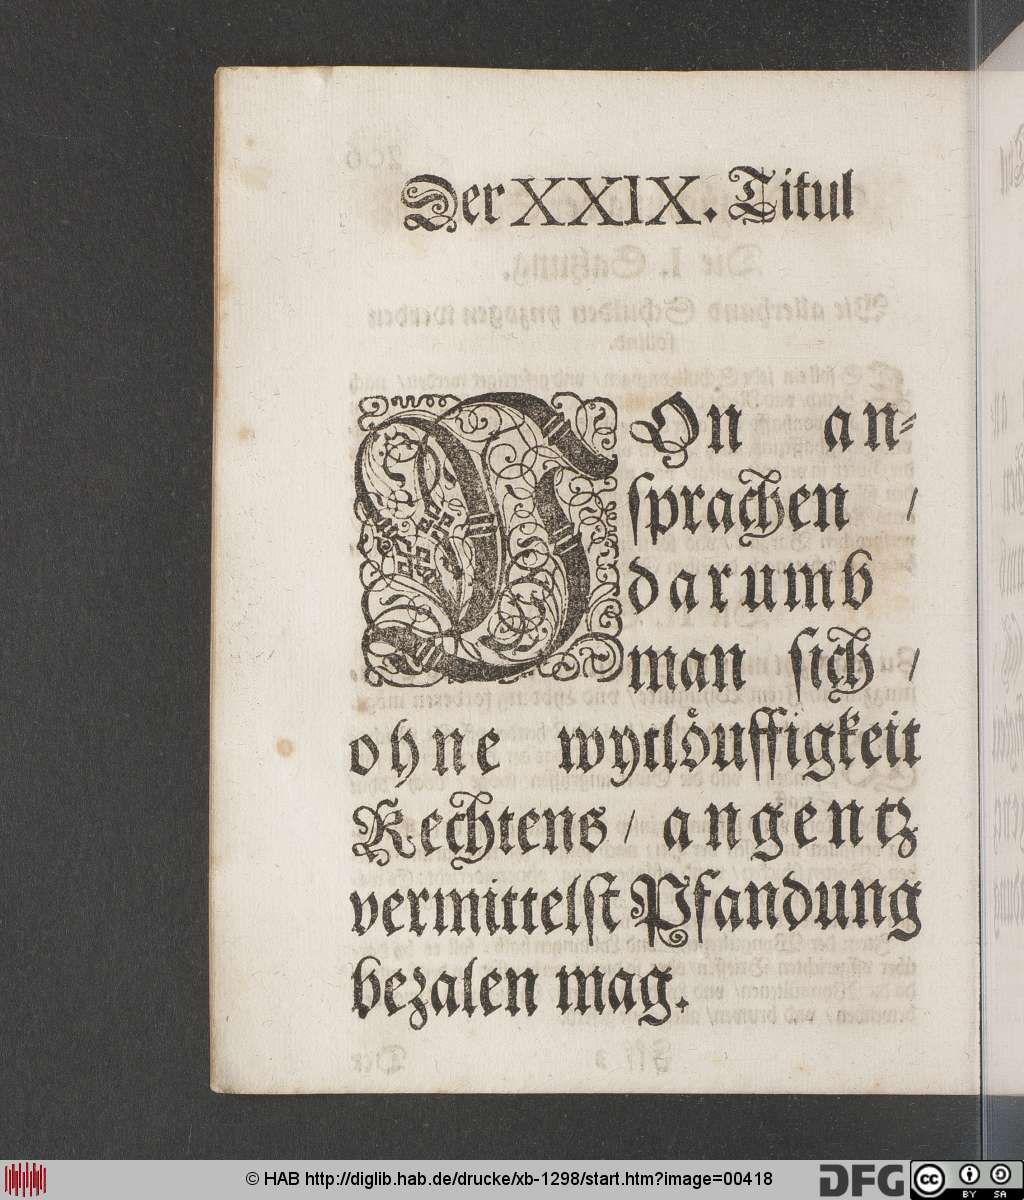 Der XXIX. Titul
VOn an-
sprachen /
darumb
man sich /
ohne wytlöuffigkeit
Rechtens / angentz
vermittelst Pfandung
bezalen mag.
© HAB http://diglib.hab.de/drucke/xb-1298/start.htm?image=00418
DFG
cc
BY SA